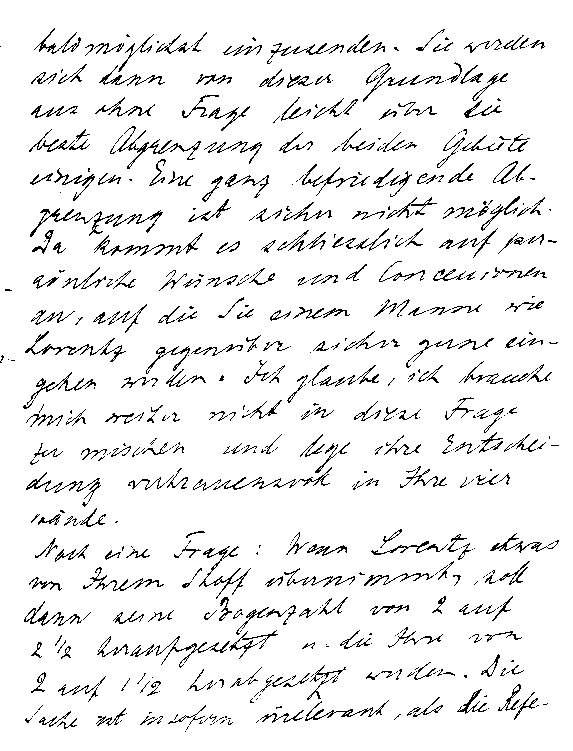 baldmöglichst einzusenden. Sie werden
sich dann von dieser Grundlage
aus ohne Frage leicht über die
beste Abgrenzung der beiden Gebiete
einigen. Eine ganz befriedigende Ab-
grenzung ist sicher nicht möglich.
Da kommt es schliesslich auf per-
sönliche Wünsche und Concessionen
an, auf die Sie einem Manne wie
Lorentz gegenüber sicher gerne ein-
gehen werden. Ich glaube, ich brauche
mich weiter nicht in diese Frage
zu mischen und lege ihre Entschei-
dung vertrauensvoll in Ihre vier
Wände.
Noch eine Frage: Wenn Lorentz etwas
von Ihrem Stoff übernimmt, soll
dann seine Bogenzahl von 2 auf
2 1/2 heraufgesetzt u. die Ihre von
2 auf 1 1/2 herabgesetzt werden. Die
Sache ist insofern irrelevant, als die Refe-